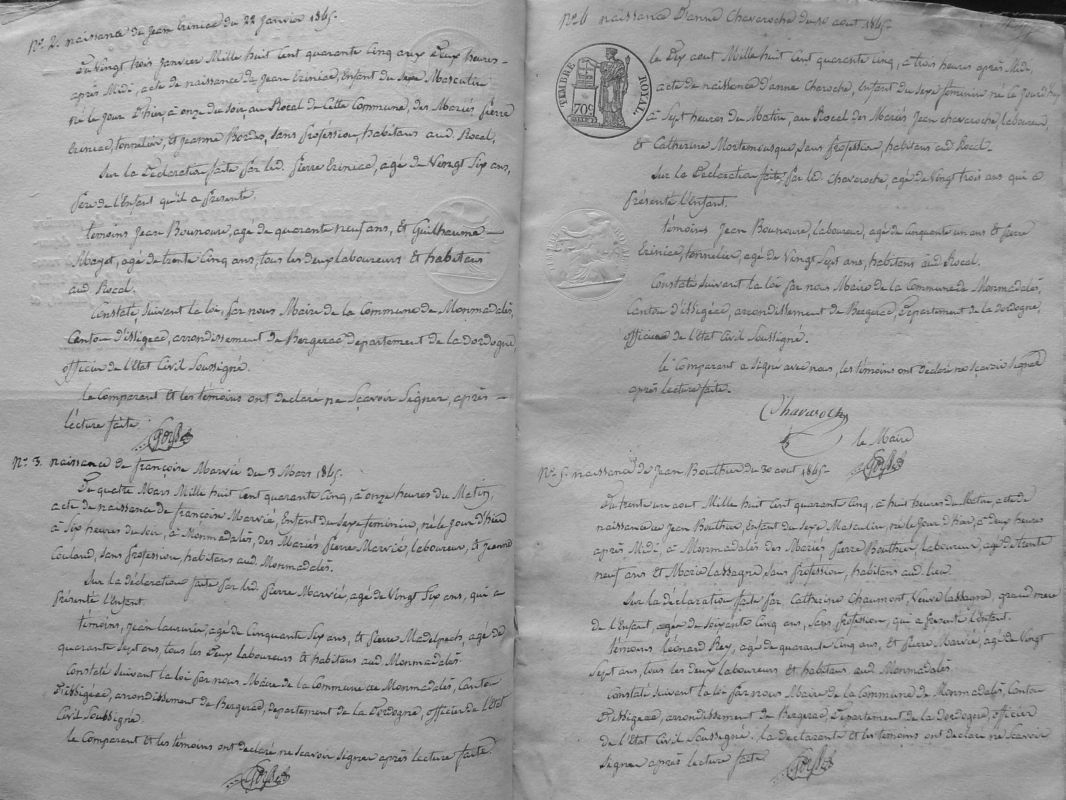 No. 2. naissance de Jean Eriniac du 22 Janvier 1845.
Du Vingt trois Janvier Mille huit Cent quarante Cinq aux Deux heures
après Midi, acte de naissance de Jean Eriniac, Enfant du Sexe Masculin
né le Jour D'hier, à onze du Soir, au Rocal de Cette Commune, des Mariés Pierre
Eriniac, tonnelier, et Jeanne Bordas, Sans profession, habitans aud. Rocal.
Sur la Déclaration faite par led. Pierre Eriniac, agé de Vingt Six ans,
Père de l'Enfant qu'il a présenté.
témoins Jean Bounoure, agé de quarante neuf ans, et Guilhaume
agé de trente Cinq ans, tous les deux laboureurs et habitans
aud. Rocal.
Constaté, Suivant la loi, par nous Maire de la Commune de Monmadalès,
Canton d'Issigeac, arrondissement de Bergerac département de la Dordogne,
officier de l'Etat Civil Soussigné.
le Comparant et les témoins ont déclaré ne Sçavoir Signer, après
lecture faite.
No. 3. naissance de françoise Marvié du 3 Mars 1845.
Du quatre Mars Mille huit Cent quarante Cinq, à onze heures du Matin,
acte de naissance de françoise Marvié, Enfant du Sexe féminin, né le Jour d'hier
à Six heures du Soir, à Monmadalès, des Mariés Pierre Marvié, laboureur, et Jeanne
Couland, Sans profession, habitans aud. Monmadalès.
Sur la déclaration faite par led. Pierre Marvié, agé de Vingt Six ans, qui a
Présenté l'Enfant.
témoins, Jean agé de Cinquante Six ans, et Pierre Madelpech, agé de
quarante Sept ans, tous les Deux laboureurs et habitans aud. Monmadalès.
Constaté Suivant la loi par nous Maire de la Commune de Monmadalès, Canton
D'issigeac, arrondissement de Bergerac, département de la Dordogne, officier de l'Etat
Civil Soussigné.
le Comparant et les témoins ont déclaré ne Scavoir Signer après lecture faite.
No. 4 naissance D'anne Chavaroche du 10 aout 1845.
TIMBRE ROYAL
70c
le Dix aout Mille huit Cent quarante Cinq, à trois heures après Midi,
acte de naissance d'anne Charoche, Enfant du Sexe féminin né le Jourd'huy
à Sept heures du Matin, au Rocal des Mariés Jean chavaroche, laboureur,
et Catherine Mortemousque, Sans Profession, habitans aud Rocal.
Sur la Déclaration faite, par led. Chavaroche, agé de Vingt trois ans qui a
Présenté l'Enfant.
témoins Jean Bounoure, laboureur, agé de Cinquante un ans et Pierre
Eriniac, tonnelier, agé de Vingt Sept ans, habitans aud Rocal.
Constaté Suivant la loi par nous Maire de la Commune de Monmadalès,
Canton d'issigeac, arrondissement de Bergerac, Département de la Dordogne,
officier de l'Etat Civil Soussigné.
le Comparant a Signé avec nous, les témoins ont Déclaré ne Sçavoir Signer
après lecture faite.
Chavaroche
le Maire
No. 5. naissance de Jean Bouthier du 30 aout 1845.
Du trente un aout Mille huit Cent quarante Cinq, à huit heures du Matin, acte de
naissance de Jean Bouthier, Enfant du Sexe Masculin, né le Jour d'hier, à Deux heures
après Midi, à Monmadalès des Mariés Pierre Bouthier, laboureur, agé de trente
neuf ans et Marie lassagne, Sans profession, habitans aud. lieu.
Sur la déclaration faite par Catherine Chaumont, Veuve lassagne, grand mère
de l'Enfant, agée de Soixante Cinq ans, Sans profession, qui a présenté l'Enfant.
témoins Léonard Rey, agé de quarante Cinq ans, et Pierre Marvié, agé de Vingt
Sept ans, tous les Deux laboureurs et habitans aud Monmadalès.
Constaté Suivant la loi par nous Maire de la Commune de Monmadalès, Canton
D'issigeac, arrondissement de Bergerac, Département de la Dordogne, officier
de l'Etat Civil Soussigné. la Déclarante et les témoins ont déclaré ne Sçavoir
Signer après lecture faite.